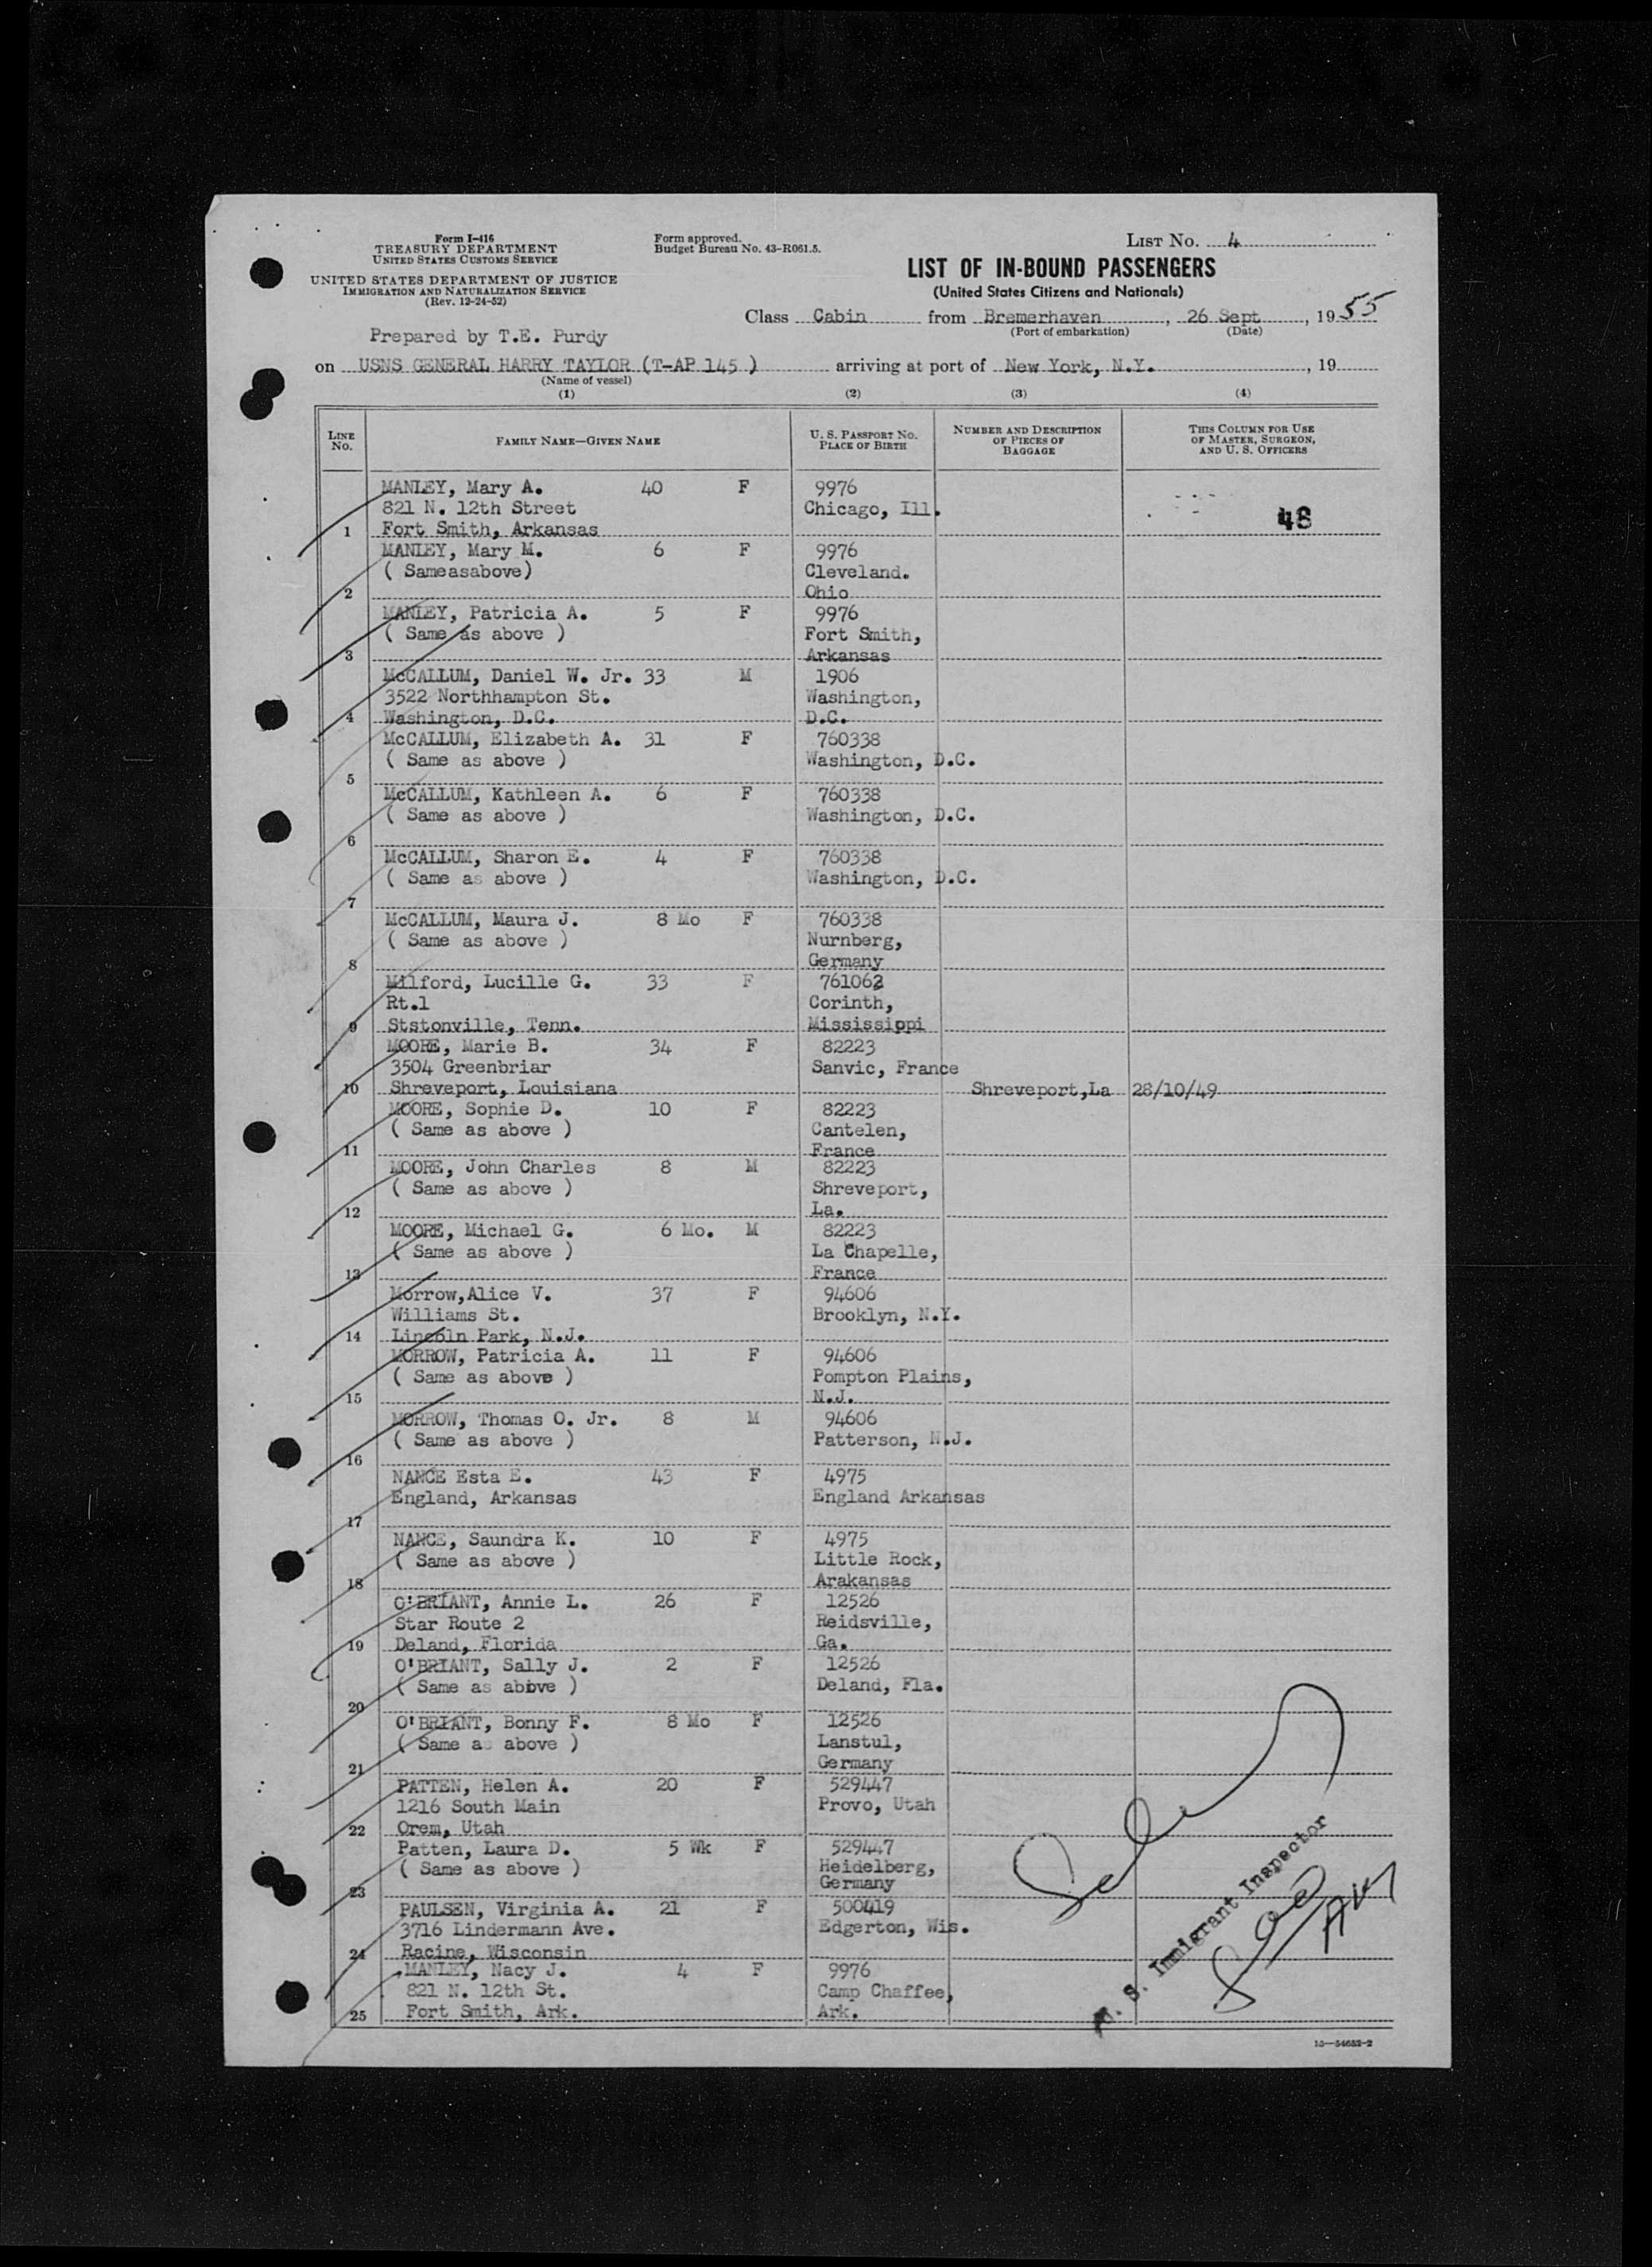 Form I-416
TREASURY DEPARTMENT
UNITED STATES CUSTOMS SERVICE
UNITED STATES DEPARTMENT OF JUSTICE
IMMIGRATION AND NATURALIZATION SERVICE
(Rev. 12-24-52)
Form approved.
Budget Bureau No. 43-R061.5.
LIST No. 4
LIST OF IN-BOUND PASSENGERS
(United States Citizens and Nationals)
Class Cabin from Bremerhaven, 26 Sept, 1955
(Port of embarkation) (Date)
Prepared by T.E. Purdy
on USNS GENERAL HARRY TAYLOR (T-AP 145 ) arriving at port of New York, N.Y., 19
(Name of vessel)
(1) (2) (3) (4)
LINE NO. FAMILY NAME—GIVEN NAME U. S. PASSPORT NO. PLACE OF BIRTH NUMBER AND DESCRIPTION OF PIECES OF BAGGAGE THIS COLUMN FOR USE OF MASTER, SURGEON, AND U. S. OFFICERS
MANLEY, Mary A. 40 F 9976
821 N. 12th Street Chicago, Ill.
1 Fort Smith, Arkansas 48
MANLEY, Mary M. 6 F 9976
( Sameasabove) Cleveland.
2 Ohio
MANLEY, Patricia A. 5 F 9976
( Same as above ) Fort Smith,
3 Arkansas
McCALLUM, Daniel W. Jr. 33 M 1906
3522 Northhampton St. Washington,
4 Washington, D.C. D.C.
McCALLUM, Elizabeth A. 31 F 760338
( Same as above ) Washington, D.C.
5
McCALLUM, Kathleen A. 6 F 760338
( Same as above ) Washington, D.C.
6
McCALLUM, Sharon E. 4 F 760338
( Same as above ) Washington, D.C.
7
McCALLUM, Maura J. 8 Mo F 760338
( Same as above ) Nurnberg,
8 Germany
Milford, Lucille G. 33 F 761062
Rt.1 Corinth,
9 Ststonville, Tenn. Mississippi
MOORE, Marie B. 34 F 82223
3504 Greenbriar Sanvic, France
10 Shreveport, Louisiana Shreveport,La 28/10/49
MOORE, Sophie D. 10 F 82223
( Same as above ) Cantelen,
11 France
MOORE, John Charles 8 M 82223
( Same as above ) Shreveport,
12 La.
MOORE, Michael G. 6 Mo. M 82223
( Same as above ) La Chapelle,
13 France
Morrow,Alice V. 37 F 94606
Williams St. Brooklyn, N.Y.
14 Lincoln Park, N.J.
MORROW, Patricia A. 11 F 94606
( Same as above ) Pompton Plains,
15 N.J.
MORROW, Thomas O. Jr. 8 M 94606
( Same as above ) Patterson, N.J.
16
NANCE Esta E. 43 F 4975
England, Arkansas England Arkansas
17
NANCE, Saundra K. 10 F 4975
( Same as above ) Little Rock,
18 Arakansas
O'BRIANT, Annie L. 26 F 12526
Star Route 2 Reidsville,
19 Deland, Florida Ga.
O'BRIANT, Sally J. 2 F 12526
( Same as abbve ) Deland, Fla.
20
O'BRIANT, Bonny F. 8 Mo F 12526
( Same as above ) Lanstul,
21 Germany
PATTEN, Helen A. 20 F 529447
1216 South Main Provo, Utah
22 Orem, Utah
Patten, Laura D. 5 Wk F 529447
( Same as above ) Heidelberg,
23 Germany
PAULSEN, Virginia A. 21 F 500419
3716 Lindermann Ave. Edgerton, Wis.
24 Racine, Wisconsin
MANLEY, Nacy J. 4 F 9976
821 N. 12th St. Camp Chaffee,
25 Fort Smith, Ark. Ark.
U. S. Immigrant Inspector